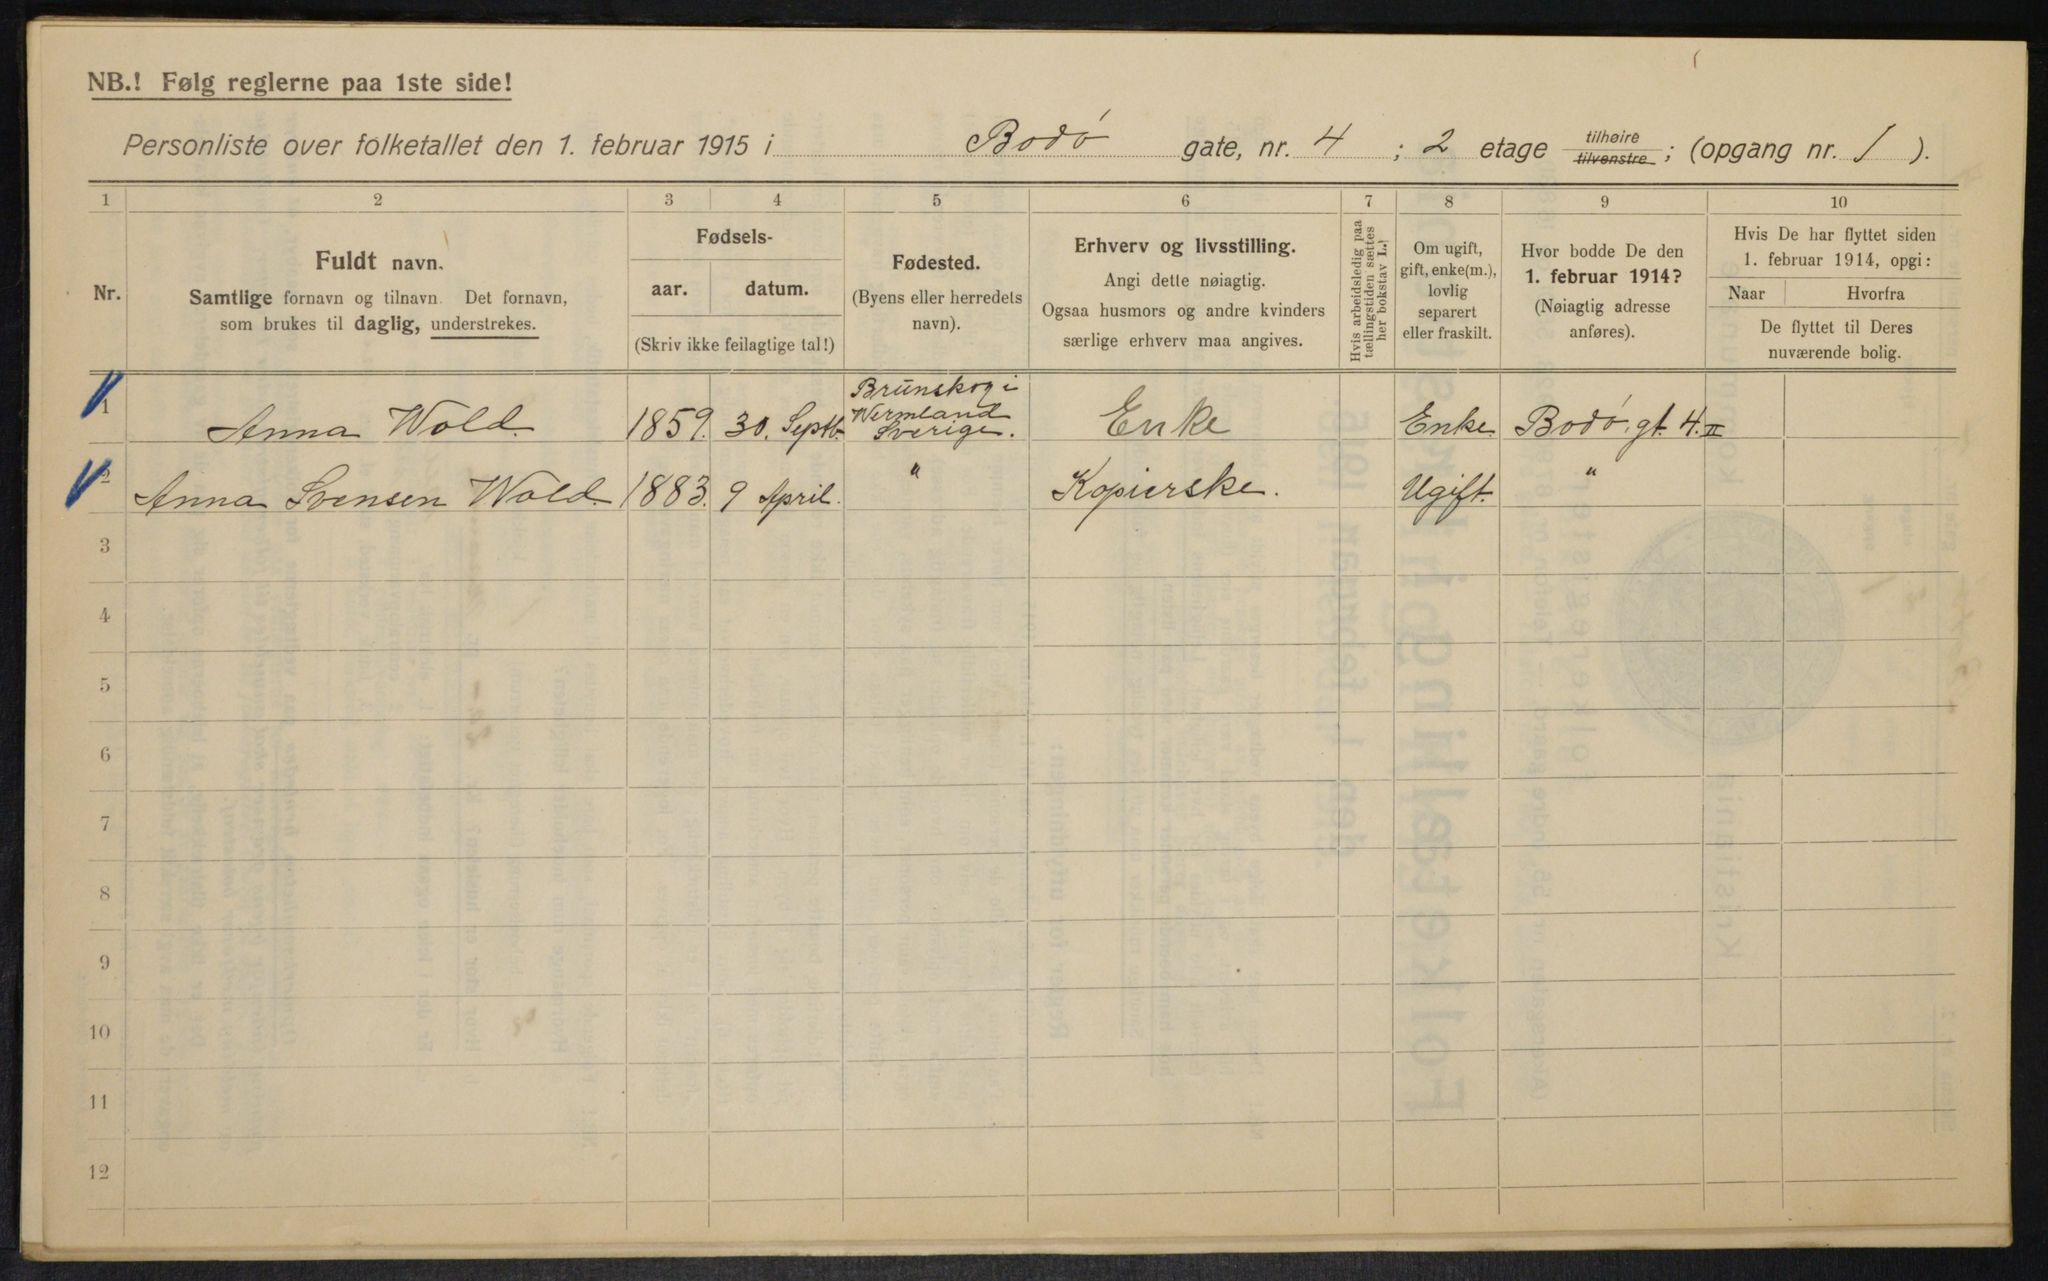 NB.! Følg reglerne paa 1ste side!
Personliste over folketallet den 1. februar 1915 i Bodø gate, nr. 4 ; 2 etage tilhøire tilvenstre ; (opgang nr. 1 ).
1 2 3 4 5 6 7 8 9 10
Nr.
Fuldt navn.
Samtlige fornavn og tilnavn. Det fornavn,
som brukes til daglig, understrekes.
Fødsels-
aar. datum.
(Skriv ikke feilagtige tal!)
Fødested.
(Byens eller herredets
navn).
Erhverv og livsstilling.
Angi dette nøiagtig.
Ogsaa husmors og andre kvinders
særlige erhverv maa angives.
Hvis arbeidsledig paa
tællingstiden sættes
her bokstav L.
Om ugift,
gift, enke(m.),
lovlig
separert
eller fraskilt.
Hvor bodde De den
1. februar 1914?
(Nøiagtig adresse
anføres).
Hvis De har flyttet siden
1. februar 1914, opgi:
Naar Hvorfra
De flyttet til Deres
nuværende bolig.
1 Anna Wold. 1859. 30. Septb. Brunskog i Wermland Sverige. Enke Enke. Bodø. gt. 4. II
2 Anna Svensen Wold. 1883. 9 April. " Kopierske. Ugift. "
3
4
5
6
7
8
9
10
11
12